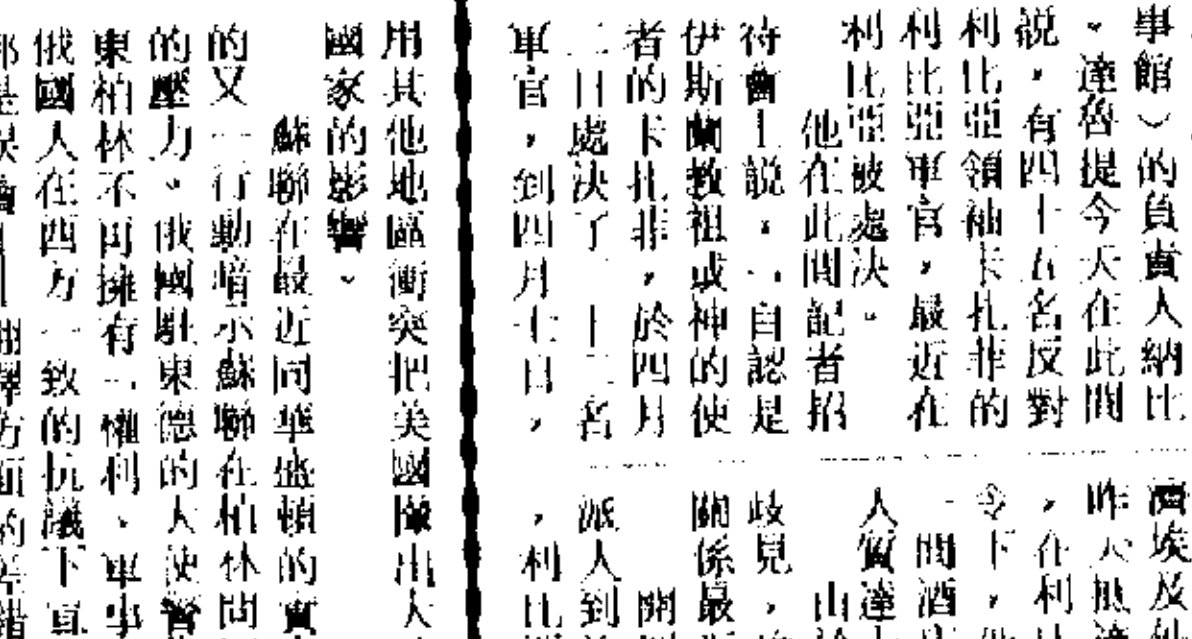 事館）的負責人納比
。達魯提今天在此間
説，有四十五名反對
利比亞領袖卡扎非的
利比亞軍官，最近在
利比亞被處決。
他在此間記者招
待會上説，「自認是
伊斯蘭教祖或神的使
者的卡扎非，於四月
二日處決了二十二名
軍官，到四月七日，
濟埃及
昨天抵達
，在利
令下，
一間酒店
人質達
由於
歧見，
關係最
關
派人到
，利比
用其他地區衝突把美國攆出
國家的影響。
蘇聯在最近同華盛頓的
的又一行動暗示蘇聯在柏林問
的壓力。俄國駐東德的大使
東柏林不再擁有「權利、軍事
俄國人在西方一致的抗議下
翻譯方面的差錯